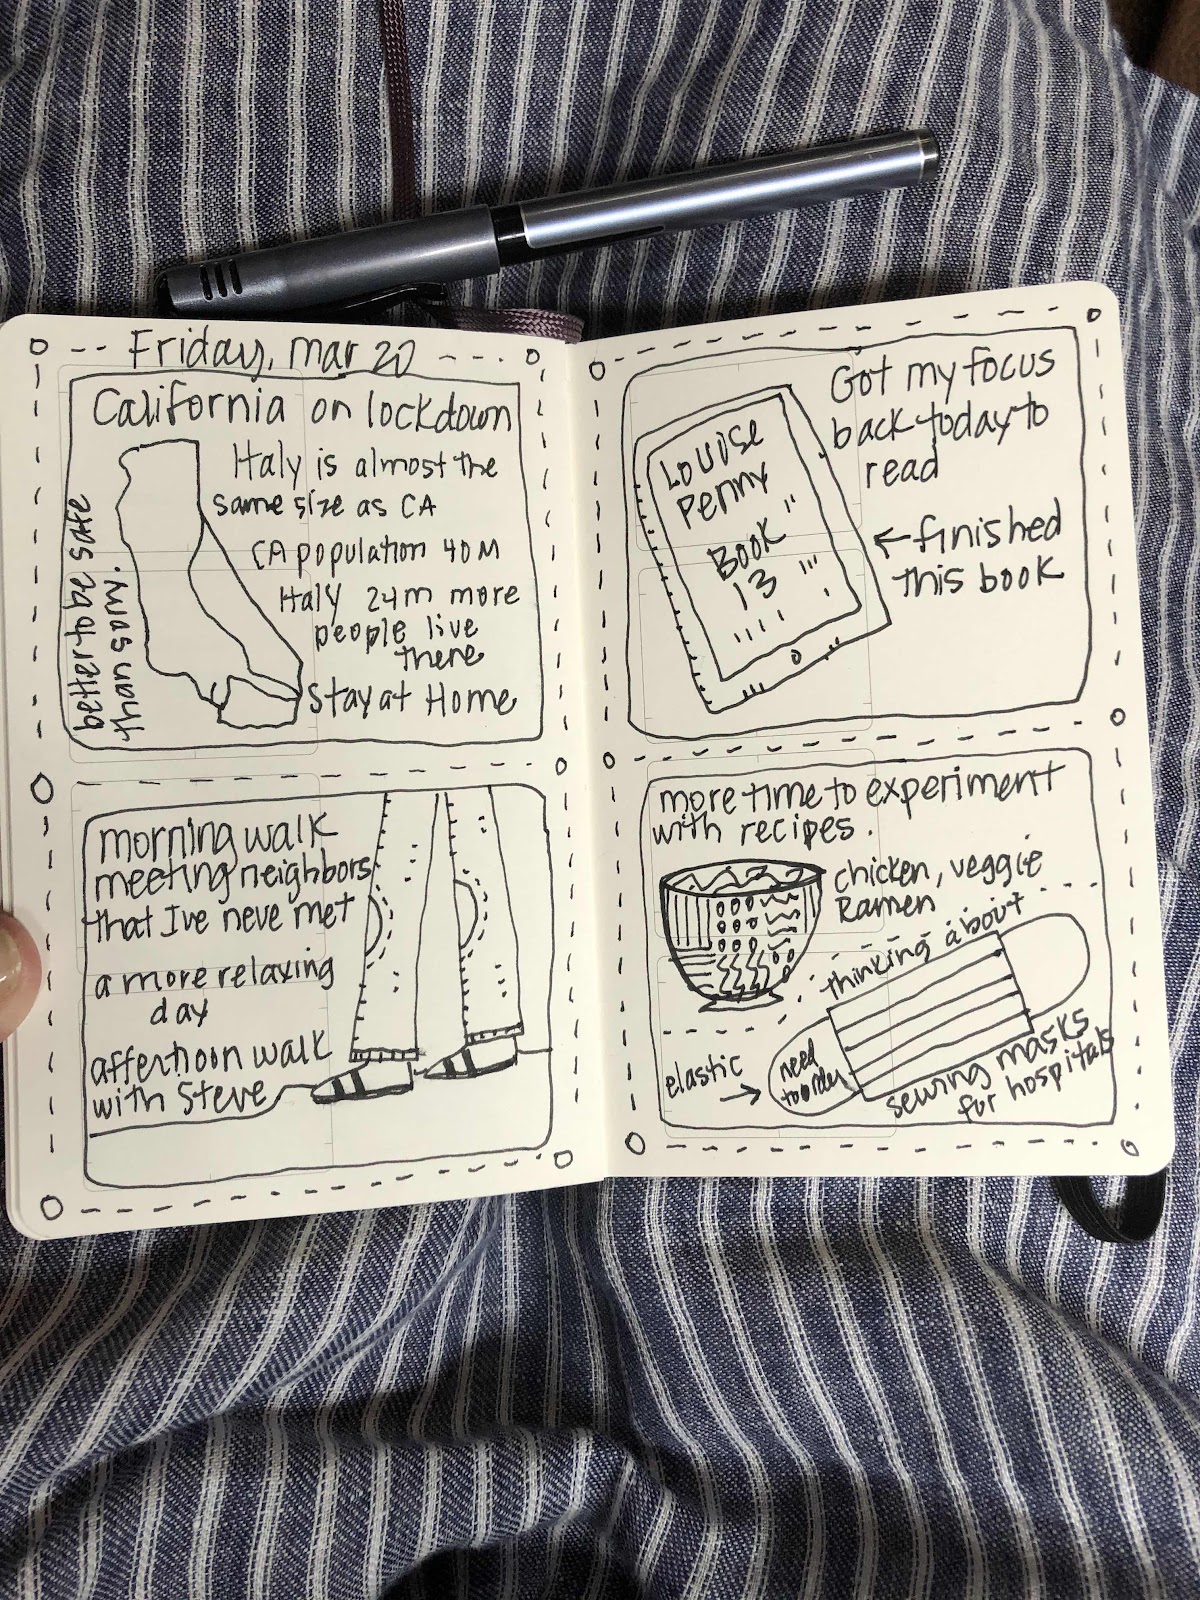 Friday, mar 20
California on lockdown
Italy is almost the
same size as CA
CA population 40M
Italy 24m more
people live
there
Stay at Home
better to be safe
than sorry.
morning walk
meeting neighbors
that I've neve met
a more relaxing
day
afternoon walk
with Steve
Got my focus
back today to
read
Louise
Penny
Book
13
←finished
this book
more time to experiment
with recipes.
chicken, veggie
Ramen
thinking about
sewing masks
for hospitals
elastic →
need
to order